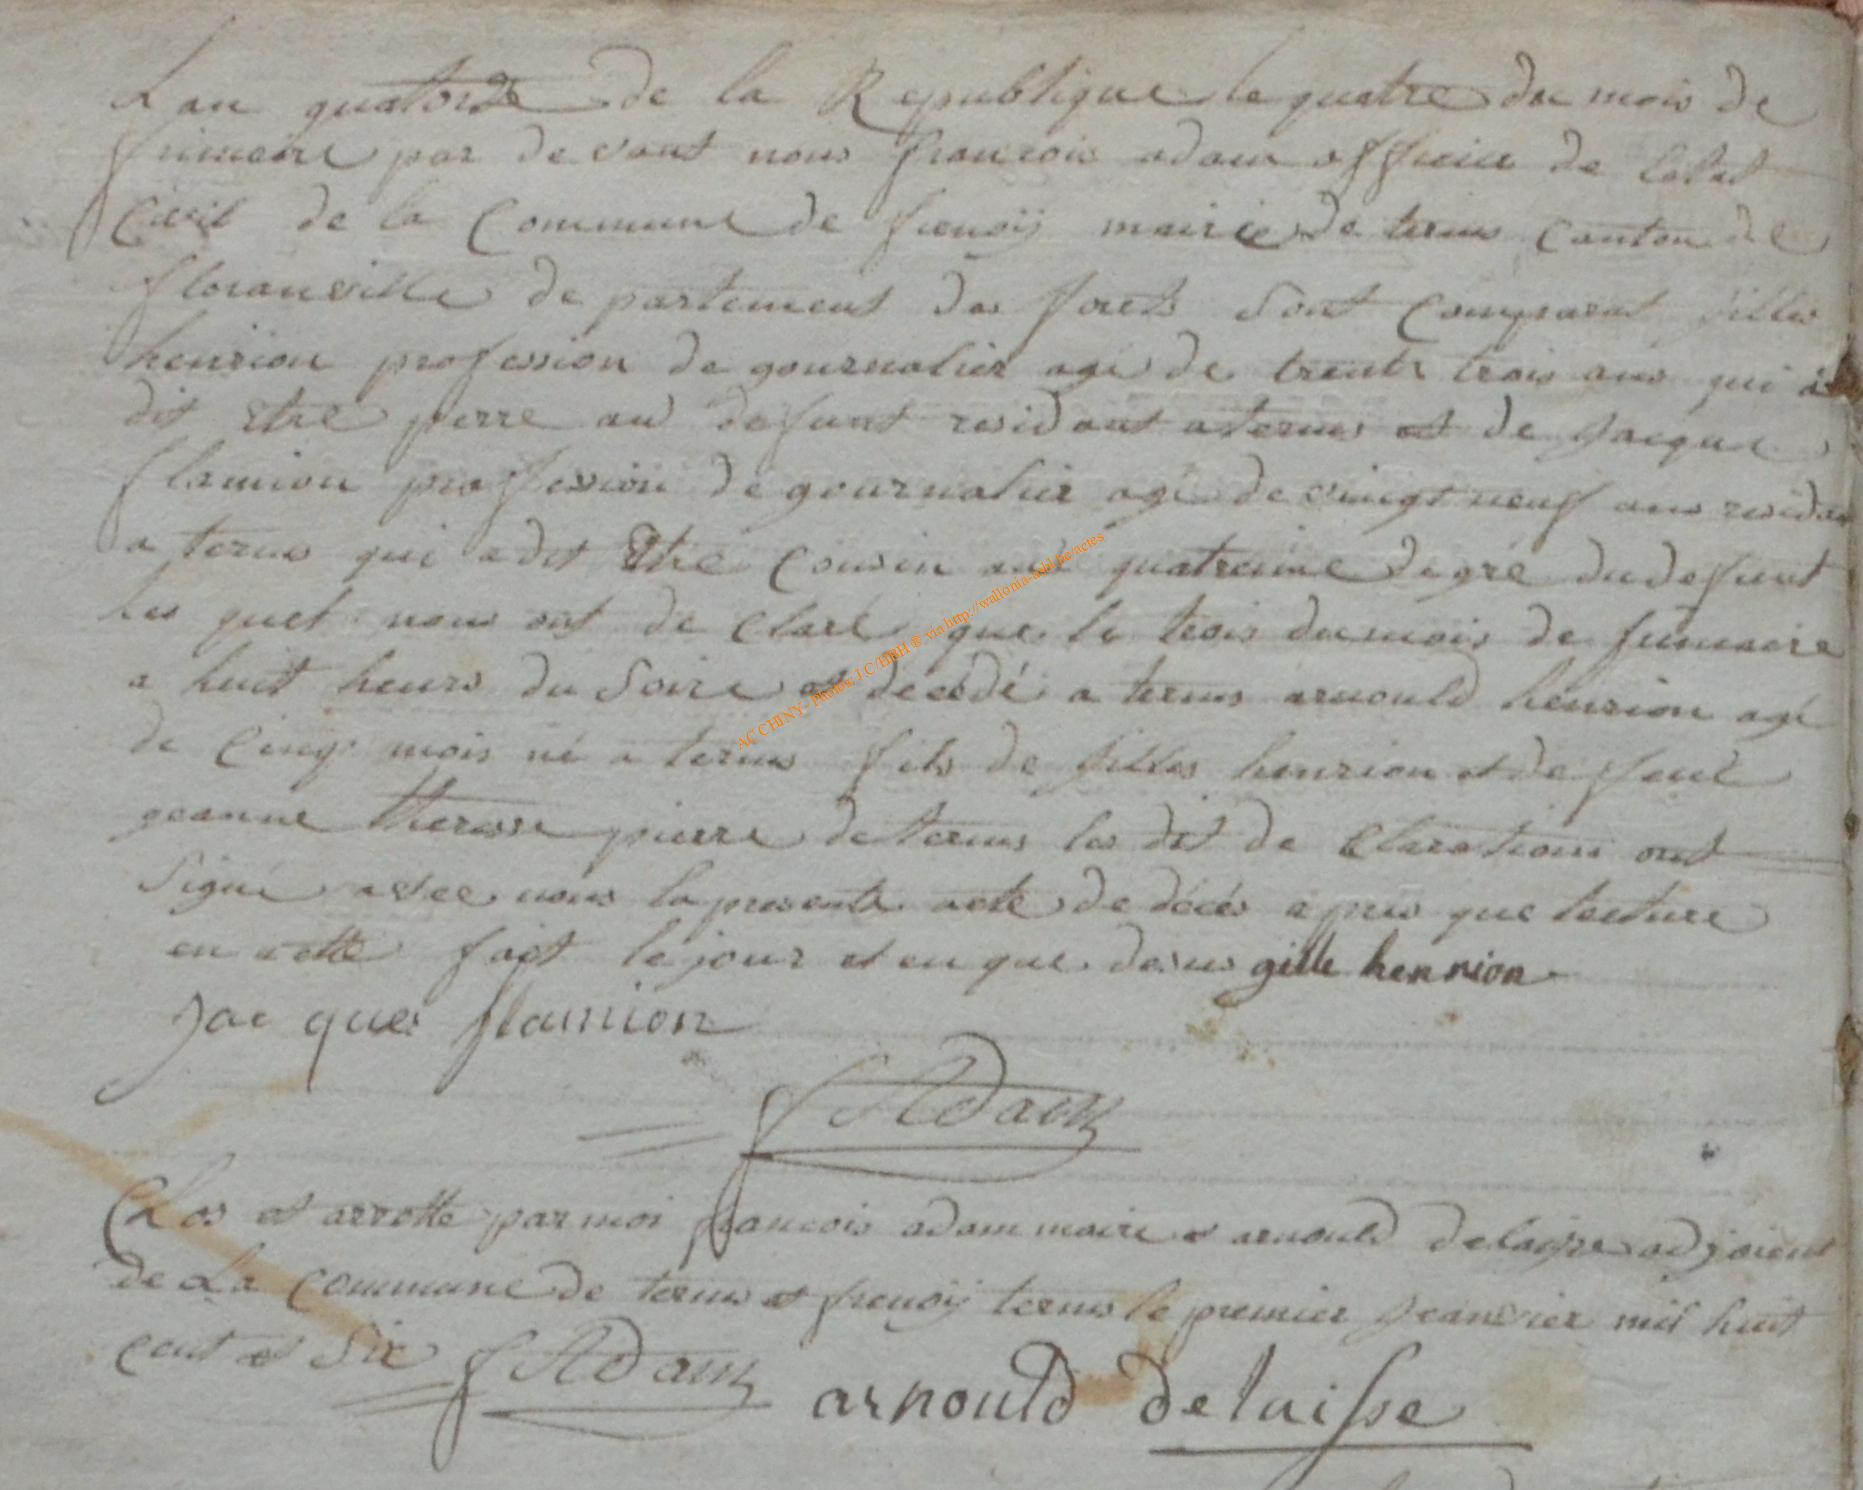 Lan quatorde de la Republique le quatre du mois de
frimeire par devant nous francois adam officier de letat
Civil de la Commune de frenoÿ mairie de termes Canton de
floranville departement des forets sont Comparat gilles
henrion profession de gournalier agé de trente trois ans qui a
dit etre perre au defunt residant a termes et de Jacque
flamion proffession de gournalier agé de vingt neuf ans residan
a termes qui a dit Etre Cousin au quatreime degre du defunt
les quel nous ont de claré que le trois du mois de frimaire
a huit heurs du Soire est decedé a termes arnould henrion agé
de Cinq mois né a termes fils de gilles henrion et de feue
geanne therese pierre de termes les dit de Claration ont
Signé avec nous la presente acte de décés apres que lecture
en a ette fait le jour et en que desus gille henrion
Jacques flamion
AC CHINY - Photos J.C/HBH ® via http://wallonia-asbl.be/actes
f Adam
Clos et arrette par moi francois adam maire et arnould delaisse adjoient
de La Commune de termes et frenoÿ termes le premier Jeanvier mil huit
cent et Six f Adam arnould delaisse